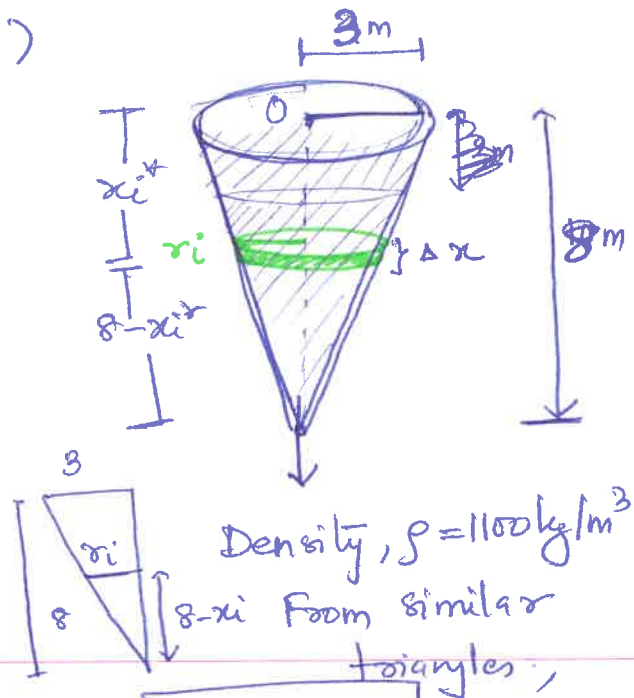 )
3m
O
xi*
ri
} Δx
8m
8-xi*
3
ri
8
8-xi
Density, ρ = 1100 kg/m³
From similar
triangles,